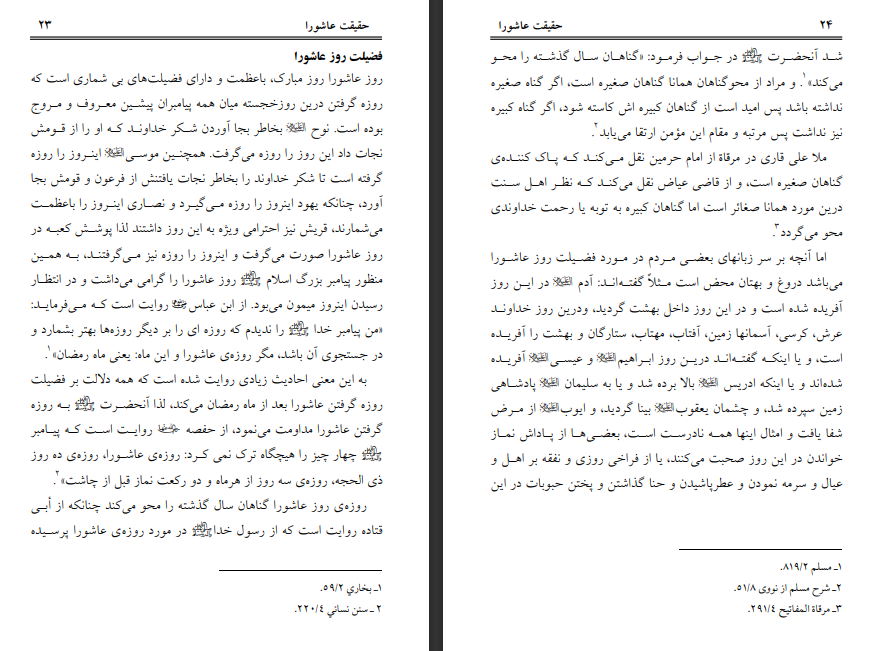 حقیقت عاشورا ۲۳
فضیلت روز عاشورا
روز عاشورا روز مبارک، باعظمت و دارای فضیلت‌های بی شماری است که
روزه گرفتن درین روزخجسته میان همه پیامبران پیشین معروف و مروج
بوده است. نوح ‏ بخاطر بجا آوردن شکر خداوند که او را از قومش
نجات داد این روز را روزه می‌گرفت. همچنین موسی اینروز را روزه
گرفته است تا شکر خداوند را بخاطر نجات یافتنش از فرعون و قومش بجا
آورد، چنانکه یهود اینروز را روزه می‌گیرد و نصاری اینروز را باعظمت
می‌شمارند، قریش نیز احترامی ویژه به این روز داشتند لذا پوشش کعبه در
روز عاشورا صورت می‌گرفت و اینروز را روزه نیز می‌گرفتند، به همین
منظور پیامبر بزرگ اسلام ﷺ روز عاشورا را گرامی می‌داشت و در انتظار
رسیدن اینروز میمون می‌بود. از ابن عباس روایت است که می‌فرماید:
«من پیامبر خدا ﷺ را ندیدم که روزه ای را بر دیگر روزه‌ها بهتر بشمارد و
در جستجوی آن باشد، مگر روزه‌ی عاشورا و این ماه: یعنی ماه رمضان»۱.
به این معنی احادیث زیادی روایت شده است که همه دلالت بر فضیلت
روزه گرفتن عاشورا بعد از ماه رمضان می‌کند، لذا آنحضرت ﷺ به روزه
گرفتن عاشورا مداومت می‌نمود، از حفصه روایت است که پیامبر
ﷺ چهار چیز را هیچگاه ترک نمی کرد: روزه‌ی عاشورا، روزه‌ی ده روز
ذی الحجه، روزه‌ی سه روز از هرماه و دو رکعت نماز قبل از چاشت»۲.
روزه‌ی روز عاشورا گناهان سال گذشته را محو می‌کند چنانکه از أبی
قتاده روایت است که از رسول خدا ﷺ در مورد روزه‌ی عاشورا پرسیده
۱ـ بخاري ۵۹/۲.
۲ ـ سنن نسائي ۲۲۰/۴.
۲۴ حقیقت عاشورا
شد آنحضرت ﷺ در جواب فرمود: «گناهان سال گذشته را محو
می‌کند»۱. و مراد از محوگناهان همانا گناهان صغیره است، اگر گناه صغیره
نداشته باشد پس امید است از گناهان کبیره اش کاسته شود، اگر گناه کبیره
نیز نداشت پس مرتبه و مقام این مؤمن ارتقا می‌یابد۲.
ملا علی قاری در مرقاة از امام حرمین نقل می‌کند که پاک کننده‌ی
گناهان صغیره است، و از قاضی عیاض نقل می‌کند که نظر اهل سنت
درین مورد همانا صغائر است اما گناهان کبیره به توبه یا رحمت خداوندی
محو می گردد۳.
اما آنچه بر سر زبانهای بعضی مردم در مورد فضیلت روز عاشورا
می‌باشد دروغ و بهتان محض است مثلاً گفته‌اند: آدم در این روز
آفریده شده است و در این روز داخل بهشت گردید، ودرین روز خداوند
عرش، کرسی، آسمانها زمین، آفتاب، مهتاب، ستارگان و بهشت را آفریده
است، و یا اینکه گفته‌اند درین روز ابراهیم و عیسی آفریده
شده‌اند و یا اینکه ادریس بالا برده شد و یا به سلیمان پادشاهی
زمین سپرده شد، و چشمان یعقوب بینا گردید، و ایوب از مرض
شفا یافت و امثال اینها همه نادرست است، بعضی‌ها از پاداش نماز
خواندن در این روز صحبت می‌کنند، یا از فراخی روزی و نفقه بر اهل و
عیال و سرمه نمودن و عطرپاشیدن و حنا گذاشتن و پختن حبوبات در این
۱ـ مسلم ۸۱۹/۲.
۲ـ شرح مسلم از نووی ۵۱/۸.
۳ـ مرقاة المفاتیح ۲۹۱/۴.